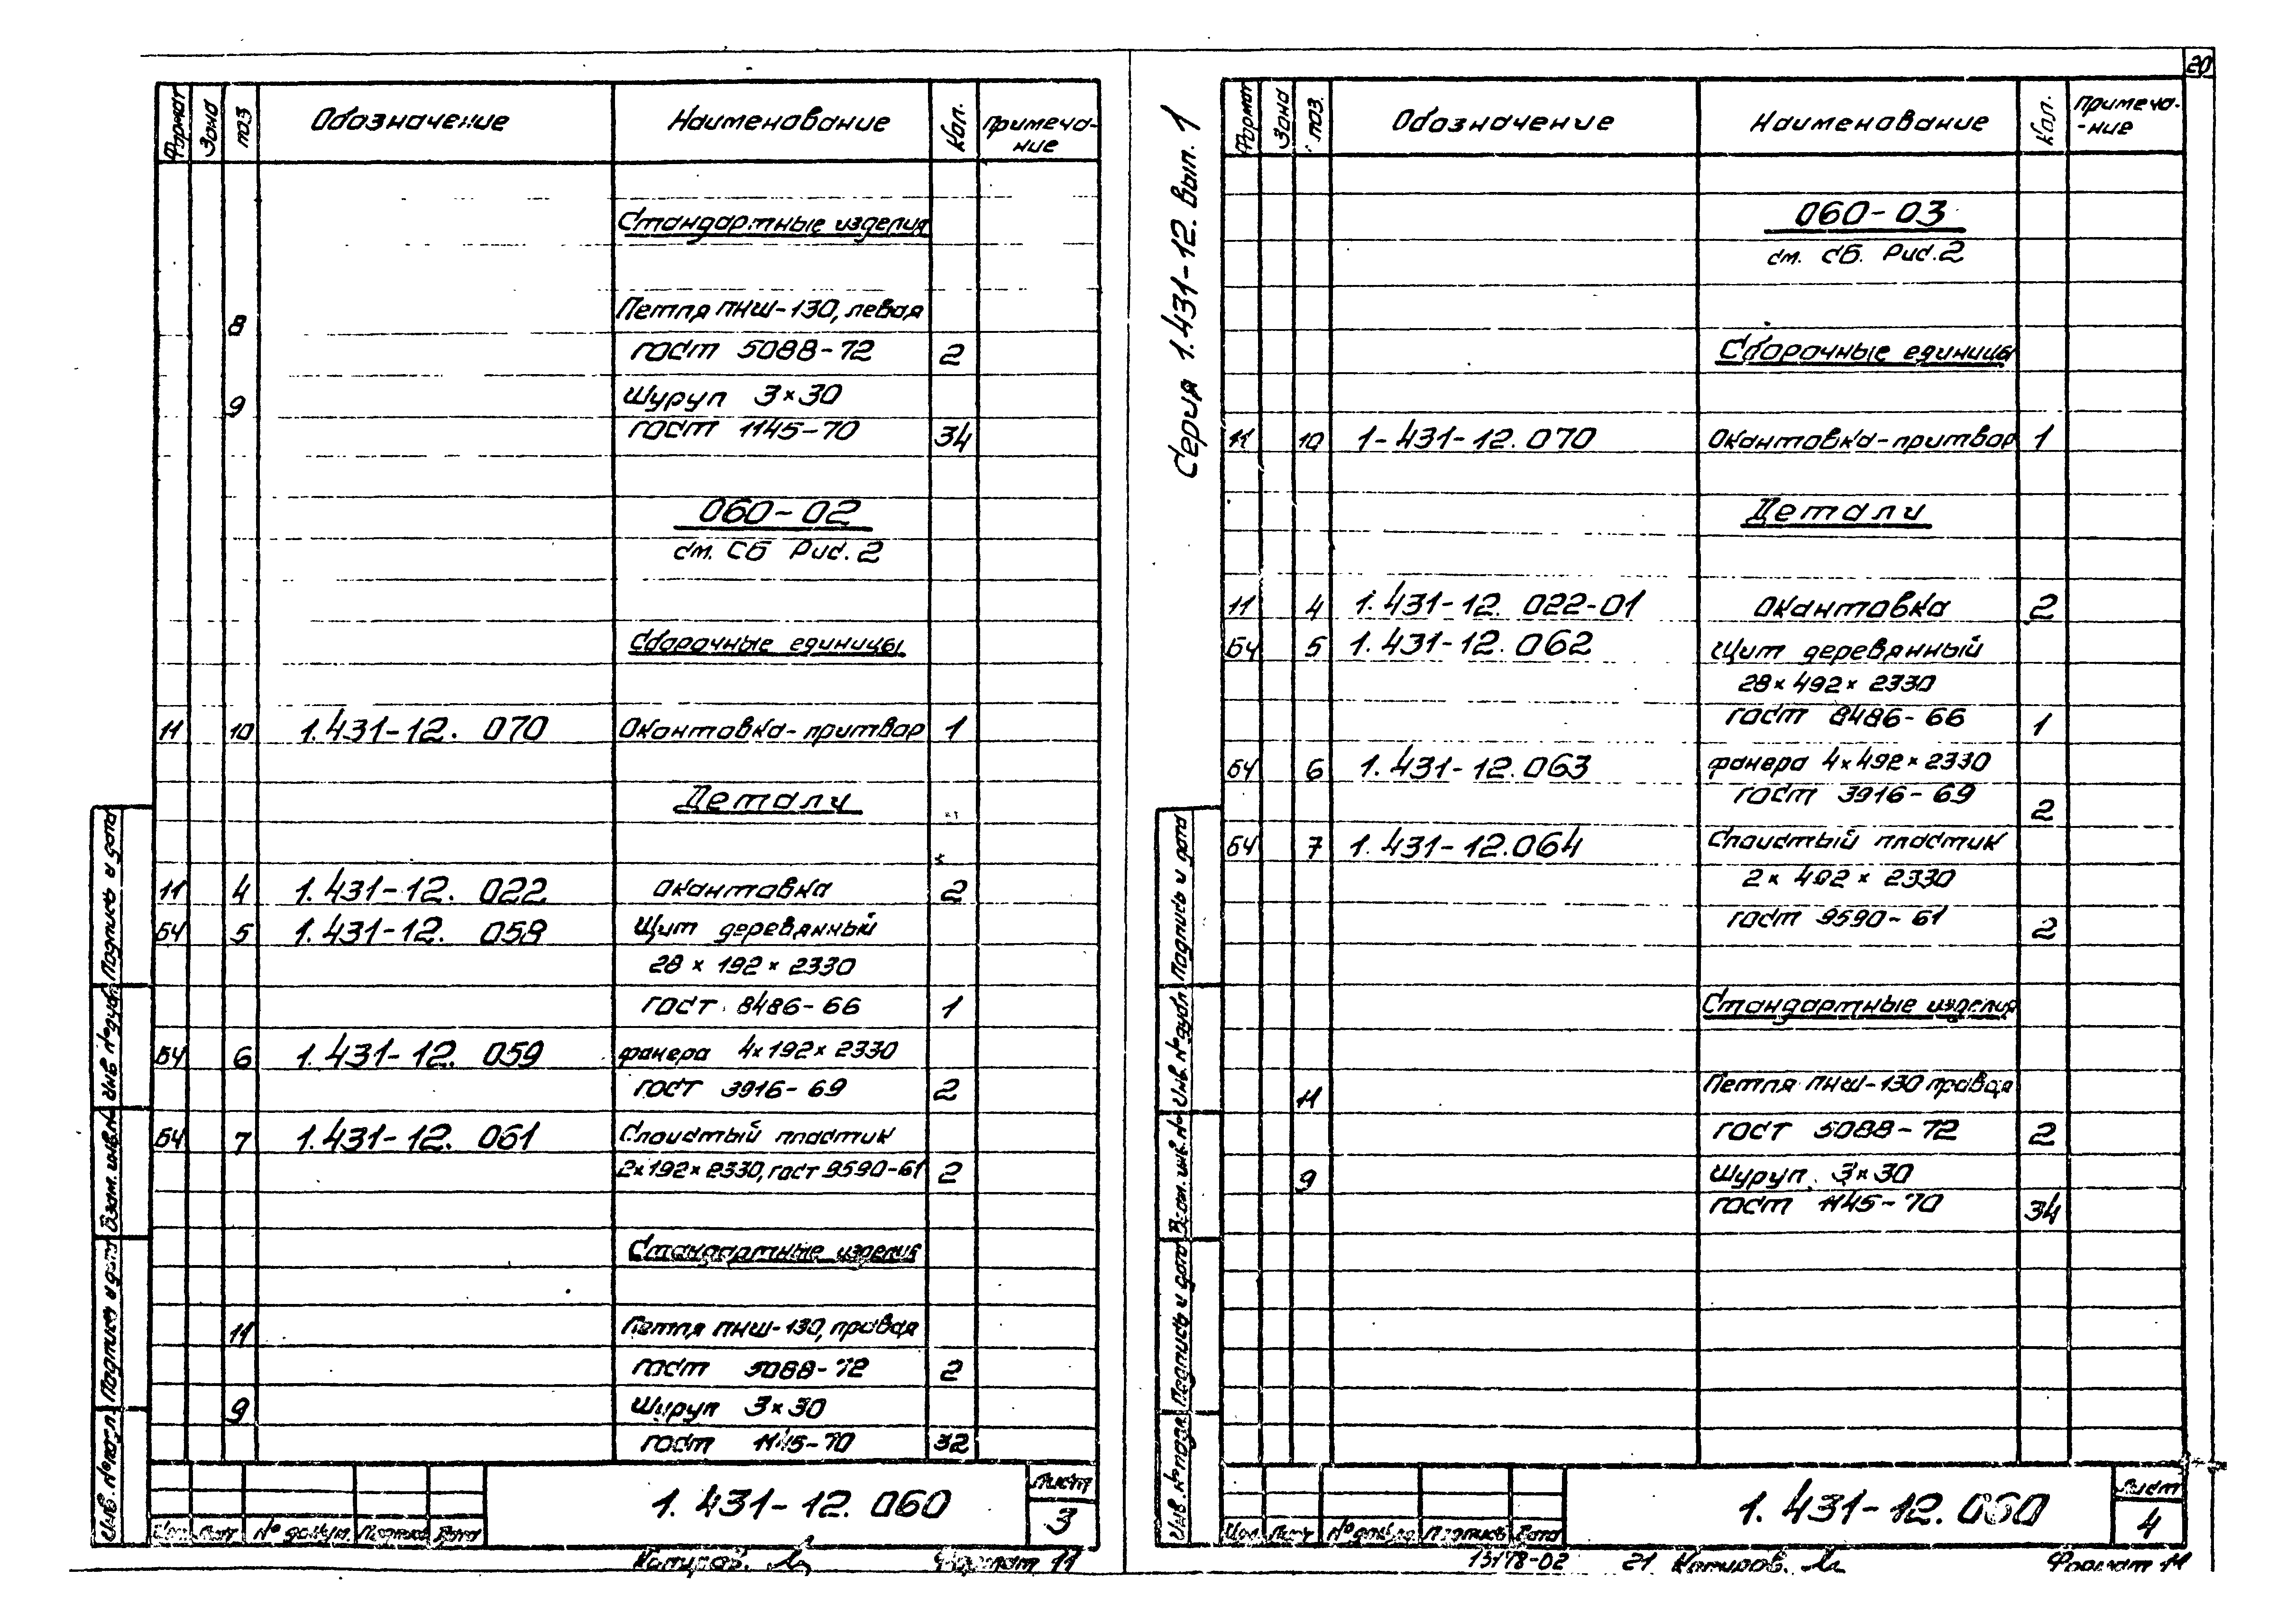 20
Формат Зона поз Обозначение Наименование Кол. Примеча-
ние
Стандартные изделия
8 Петля ПНШ-130, левая
гост 5088-72 2
9 Шуруп 3×30
гост 1145-70 34
060-02
см. СБ Рис. 2
Сборочные единицы
11 10 1.431-12. 070 Окантовка-притвор 1
Детали
11 4 1.431-12. 022 Окантовка 2
БЧ 5 1.431-12. 058 Щит деревянный
28 × 192 × 2330
гост 8486-66 1
БЧ 6 1.431-12. 059 фанера 4×192×2330
гост 3916-69 2
БЧ 7 1.431-12. 061 Слоистый пластик
2×192×2330, гост 9590-61 2
Стандартные изделия
11 Петля ПНШ-130, правая
гост 5088-72 2
9 Шуруп 3×30
гост 1145-70 32
Инв. № подл. Подпись и дата Взам. инв. № Инв. № дубл. Подпись и дата
Изм. Лист № докум. Подпись Дата
1.431-12.060
Лист
3
Копиров.
Формат 11
Серия 1.431-12. Вып. 1
Формат Зона поз. Обозначение Наименование Кол. Примеча-
-ние
060-03
см. СБ. Рис. 2
Сборочные единицы
11 10 1-431-12. 070 Окантовка-притвор 1
Детали
11 4 1.431-12. 022-01 Окантовка 2
БЧ 5 1.431-12. 062 Щит деревянный
28×492×2330
гост 8486-66 1
БЧ 6 1.431-12.063 фанера 4×492×2330
гост 3916-69 2
БЧ 7 1.431-12.064 Слоистый пластик
2×492×2330
гост 9590-61 2
Стандартные изделия
11 Петля ПНШ-130 правая
гост 5088-72 2
9 Шуруп 3×30
гост 1145-70 34
Инв. № подл. Подпись и дата Взам. инв. № Инв. № дубл. Подпись и дата
Изм. Лист № докум. Подпись Дата
1.431-12.060
Лист
4
13178-02 21 Копиров.
Формат 11